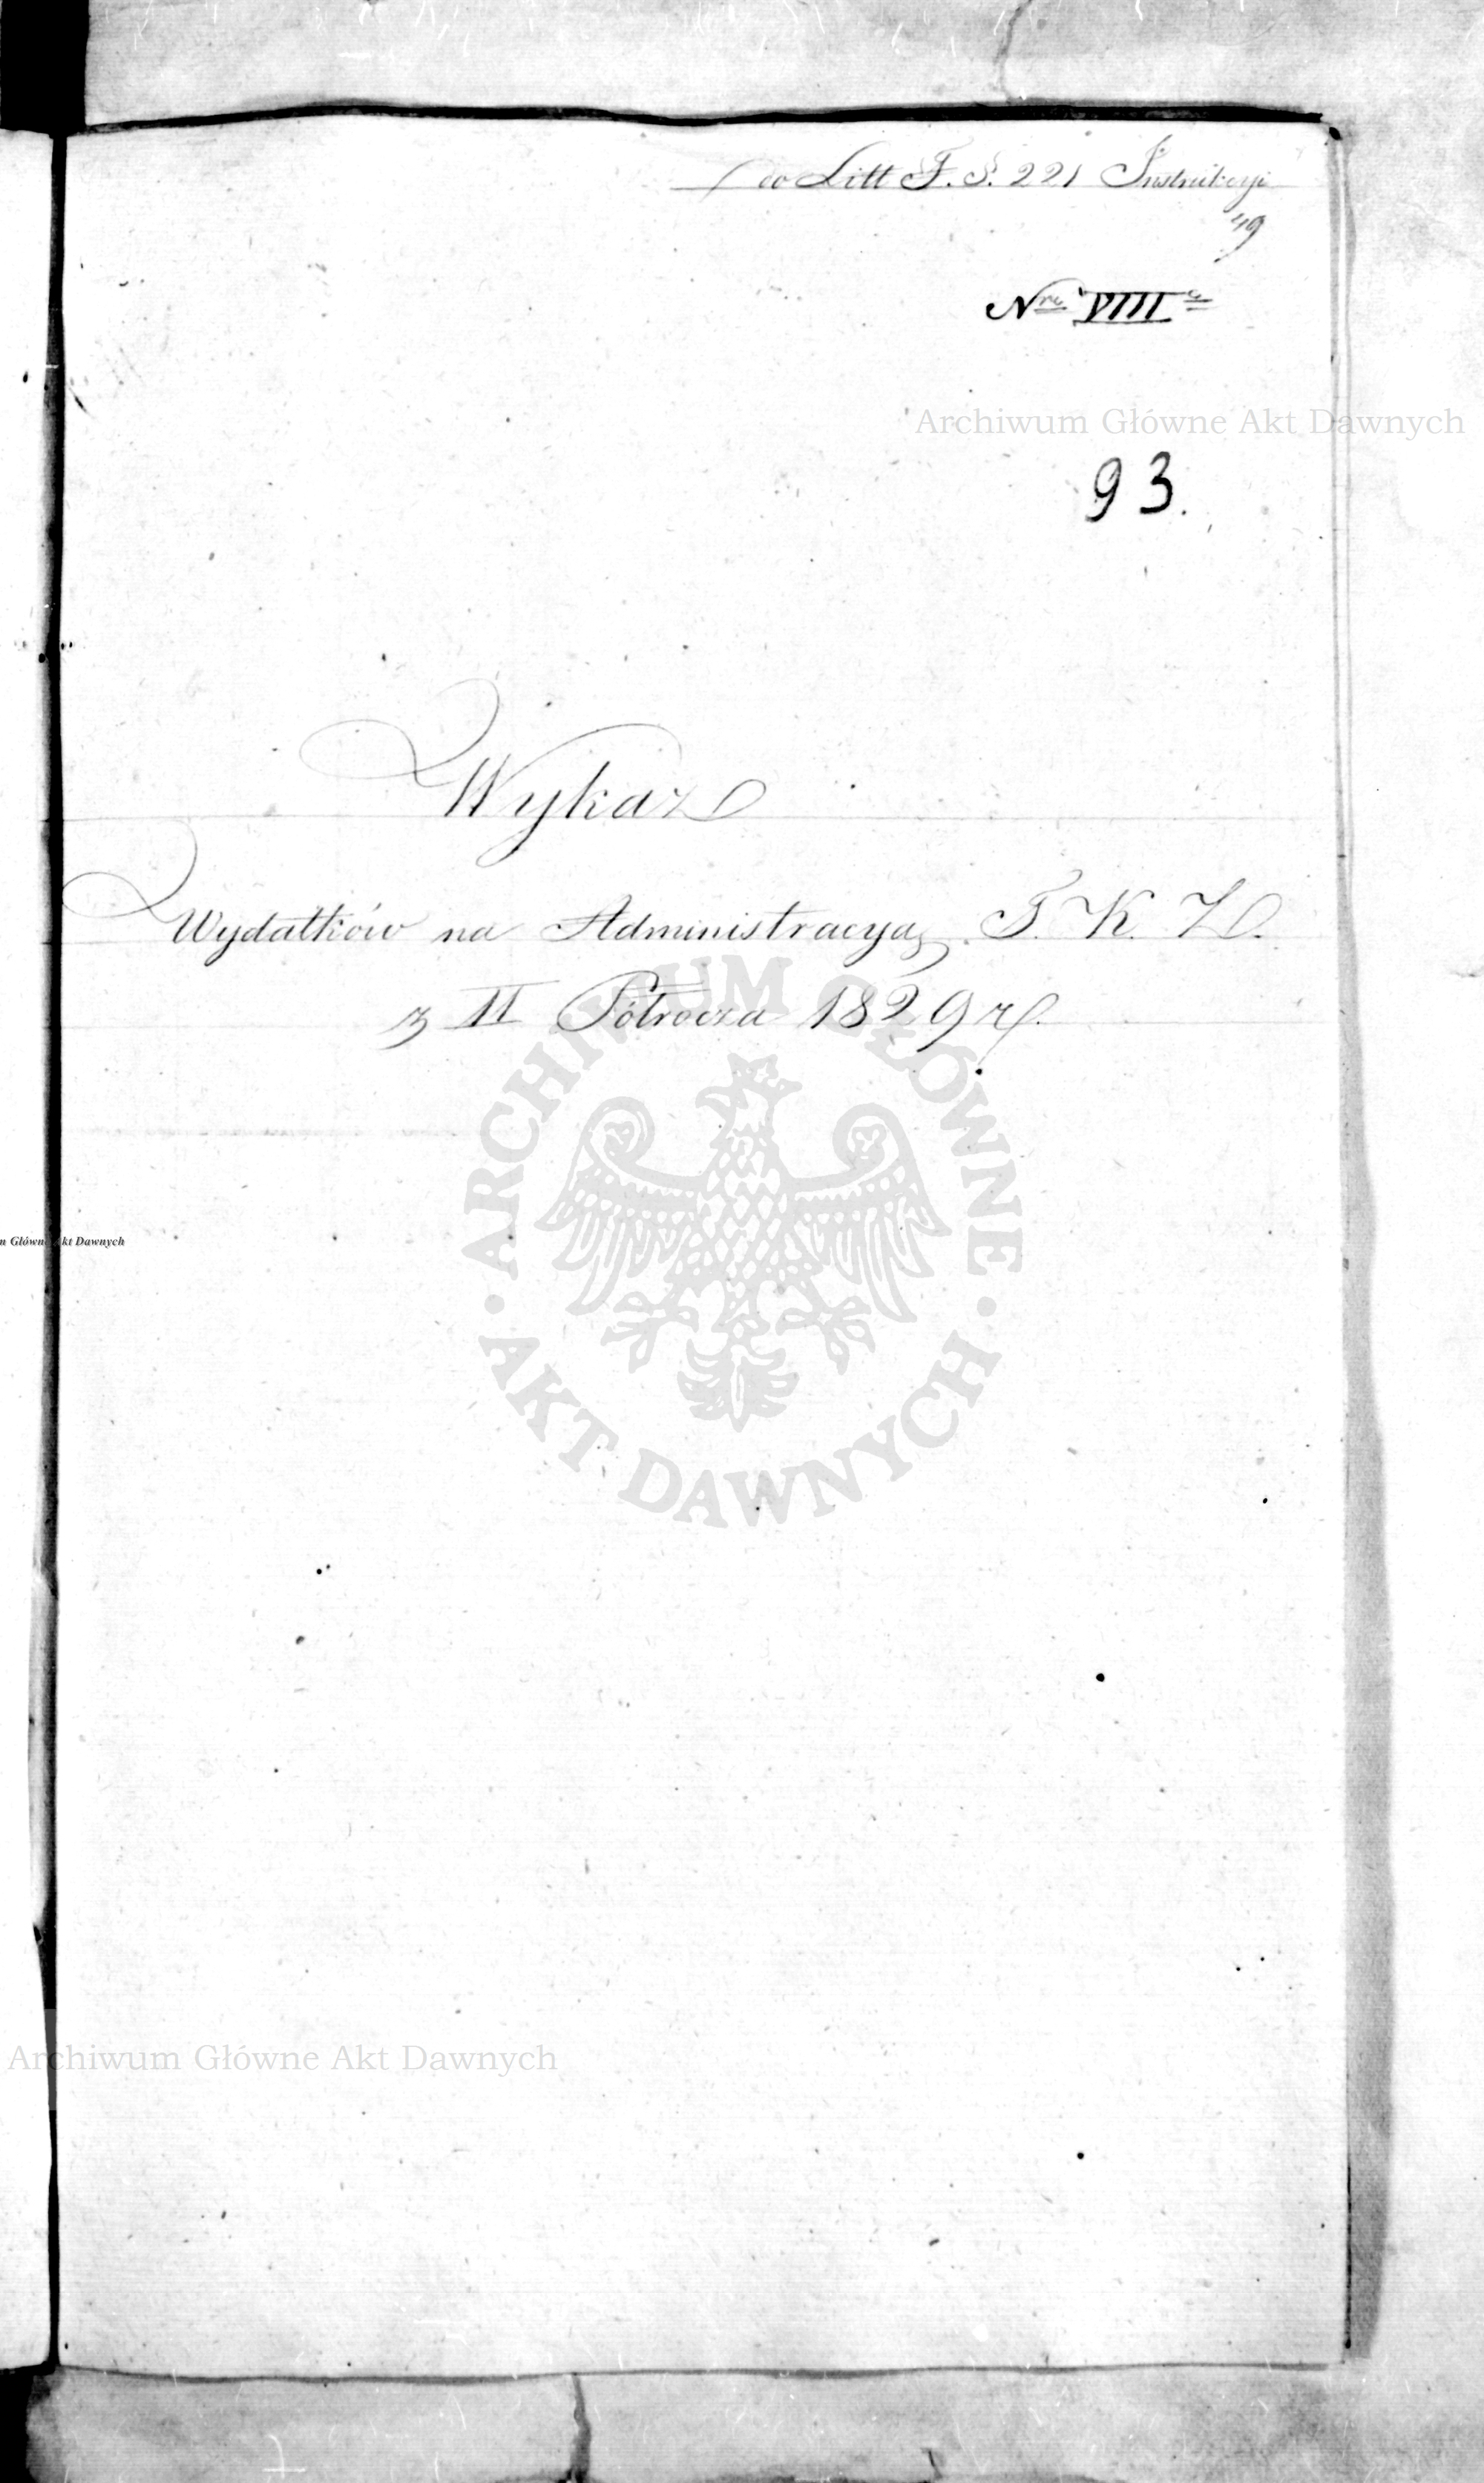 do Litt F. §. 221 Instrukcyi
49
Nro VIII
Archiwum Główne Akt Dawnych
93.
Wykaz
Wydatków na Administracyą T. K. Z.
z II Półrocza 1829 r.
ARCHIWUM GŁÓWNE
AKT DAWNYCH
m Główne Akt Dawnych
Archiwum Główne Akt Dawnych